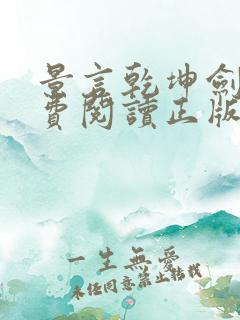 景言乾坤劍
費閱讀正版
一生無愛
未经同意禁止转载